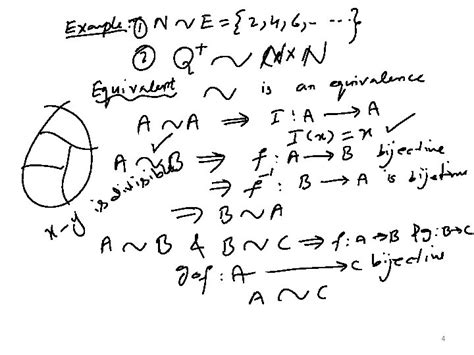 Example: ① N ~ E = {2, 4, 6, - ....}
② Q⁺ ~ N×N
Equivalent ~ is an equivalence
A ~ A ⇒ I : A → A
I(x) = x ✓
A ~ B ⇒ f : A → B bijective
⇒ f⁻¹ : B → A is bijective
⇒ B ~ A
x-y is divisible
A ~ B & B ~ C ⇒ f: A → B & g: B → C
gof : A → C bijective
A ~ C
4